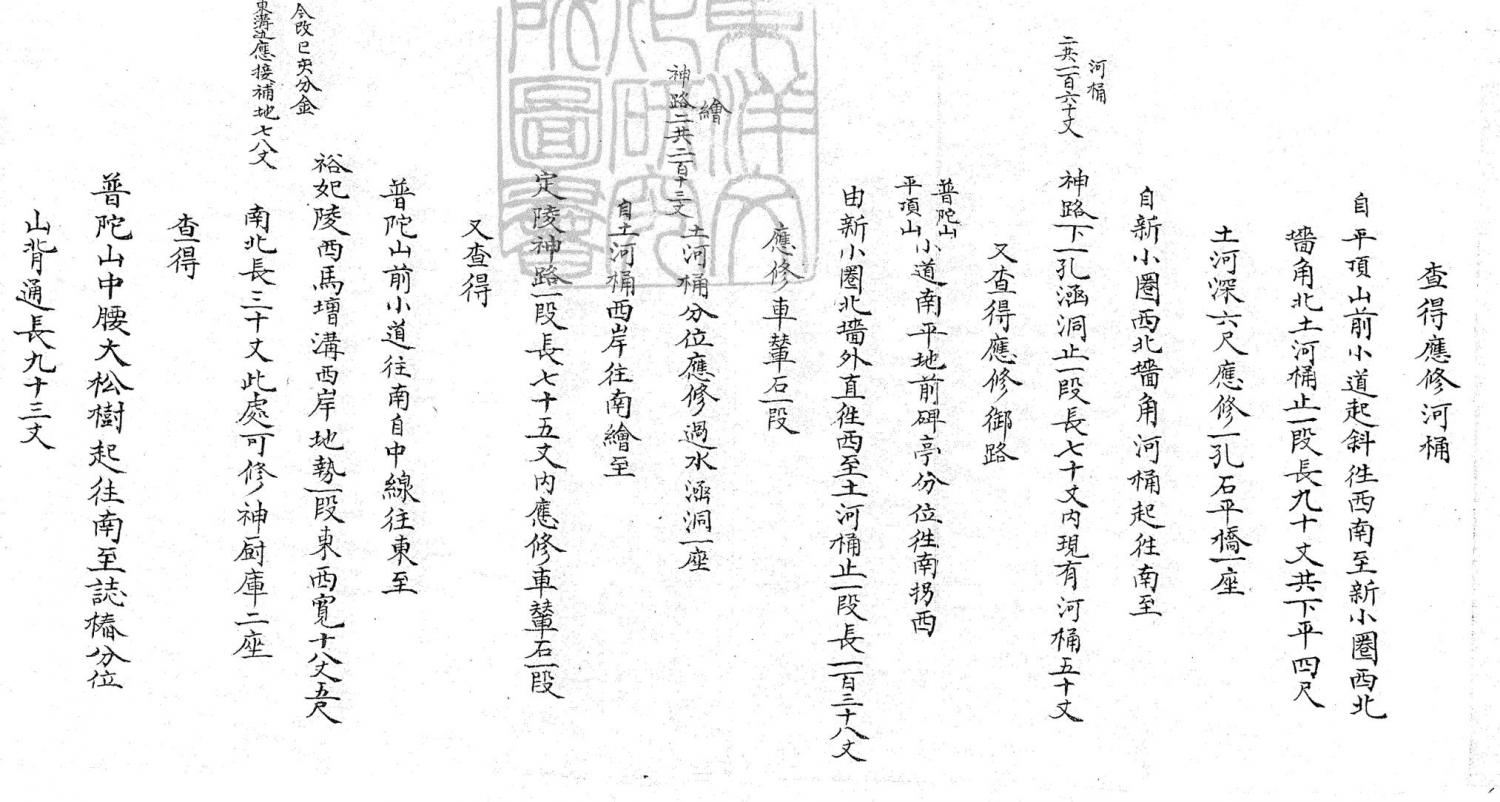 查得應修河桶
自平頂山前小道起斜徃西南至新小圈西北
墻角北土河桶止一段長九十丈共下平四尺
土河深六尺應修一孔石平橋一座
自新小圈西北墻角河桶起徃南至
河桶
二共一百六十丈
神路下一孔涵洞止一段長七十丈内現有河桶五十丈
又查得應修御路
普陀山
平頂山
小道南平地前碑亭份位徃南拐西
由新小圈北墻外直徃西至土河桶止一段長一百三十八丈
應修車輦石一段
繪
神路二共二百十三丈
土河桶分位應修過水涵洞一座
自土河桶西岸徃南繪至
定陵神路一段長七十五丈内應修車輦石一段
又查得
普陀山前小道徃南自中線徃東至
裕妃陵西馬墰溝西岸地勢一段東西寬十八丈五尺
今改巳亥分金
東溝邊應接補地七八丈
南北長三十丈此處可修神厨庫二座
查得
普陀山中腰大松樹起徃南至誌樁分位
山背通長九十三丈